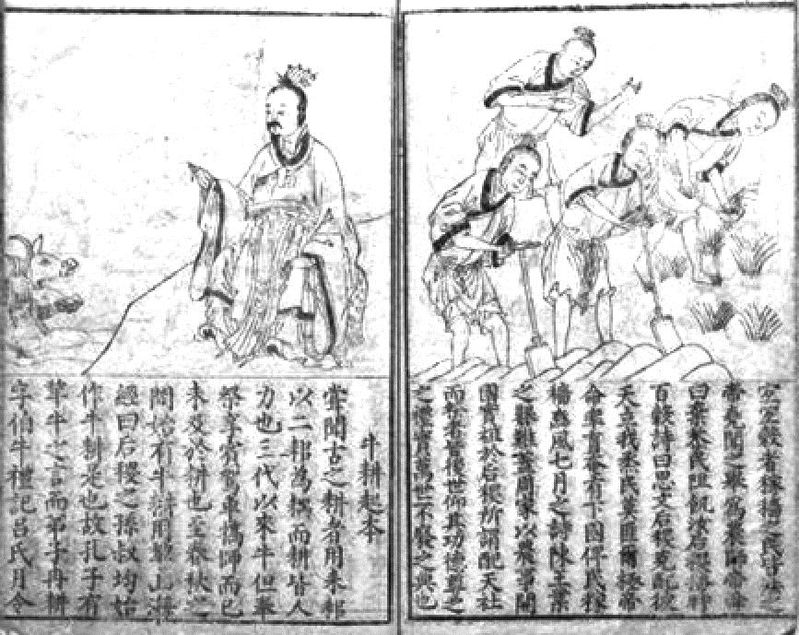 宜宜穀者稼穡之民皆法之
帝堯聞之舉爲農師帝舜
曰棄黎民阻飢汝后稷播時
百穀詩曰思文后稷克配彼
天立我烝民莫匪爾極帝
命率育奄有下國俾民稼
穡豳風七月之詩陳王業
之艱難蓋周家以農事開
國實祖於后稷所謂配天社
而祭者皆後世仰其功德尊之
之禮實萬世不廢之典也
牛耕起本
嘗聞古之耕者用耒耜
以二耜爲耦而耕皆人
力也三代以來牛但奉
祭享賓駕車犒師而已
未及於耕也至春秋之
間始有牛耕用犂山海
經曰后稷之孫叔均始
作牛耕是也故孔子有
犂牛之言而弟子冉耕
字伯牛禮記呂氏月令